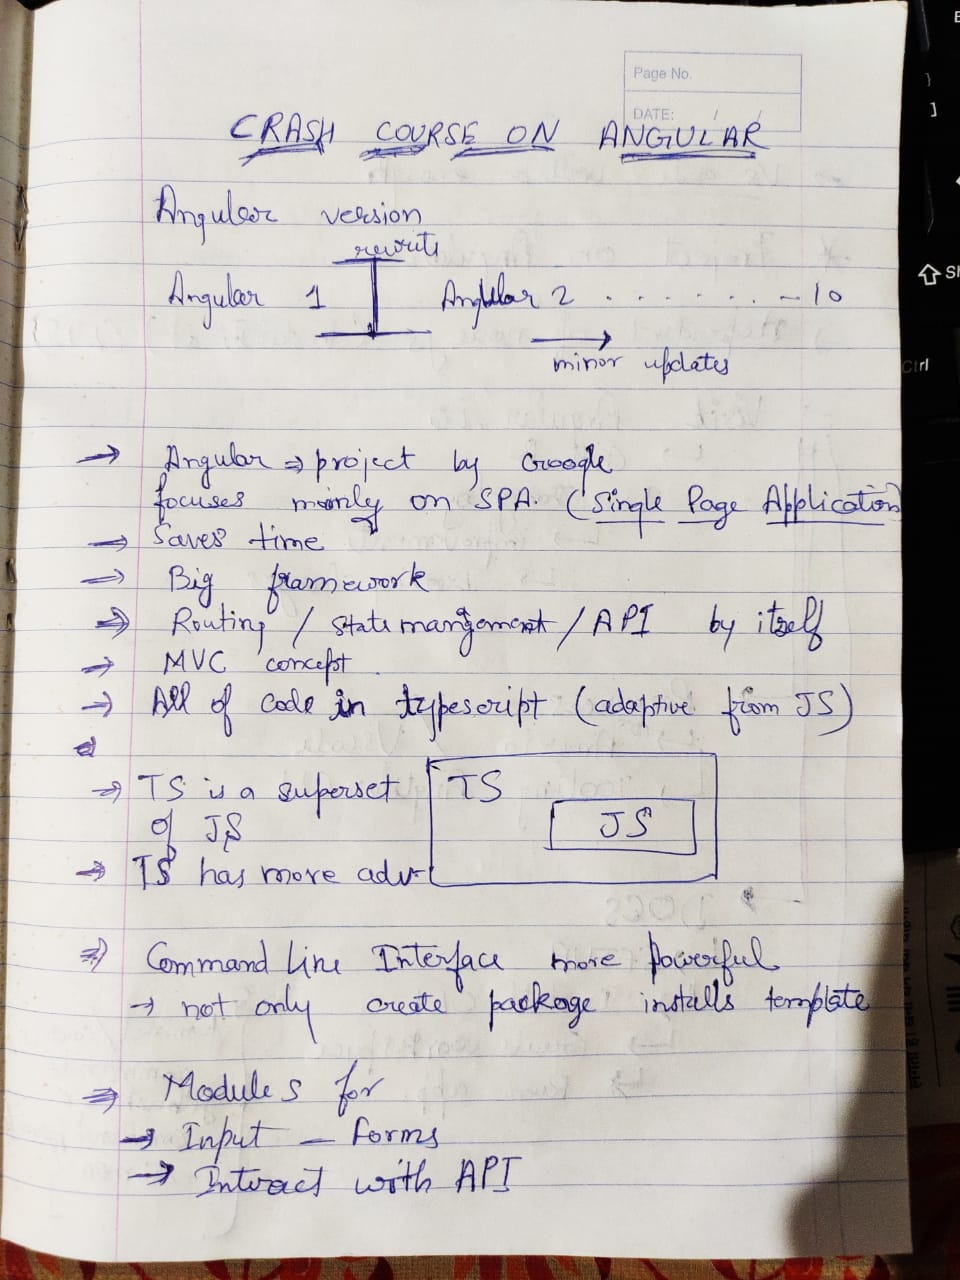 Page No.
DATE: / /
CRASH COURSE ON ANGULAR
Angular version
rewrite
Angular 1 Angular 2 . . . . . . . . - 10
→ minor updates
→ Angular ⇒ project by Google
focuses mainly on SPA. (Single Page Application)
→ Saves time
→ Big framework
⇒ Routing / state mangement / API by itself
→ MVC concept.
→ All of code in typescript (adaptive from JS)
⇒ TS is a superset
of JS
TS
JS
⇒ TS has more adv
⇒ Command Line Interface more Powerful
→ not only create package installs template
⇒ Modules for
→ Input - forms
→ Interact with API
Ctrl